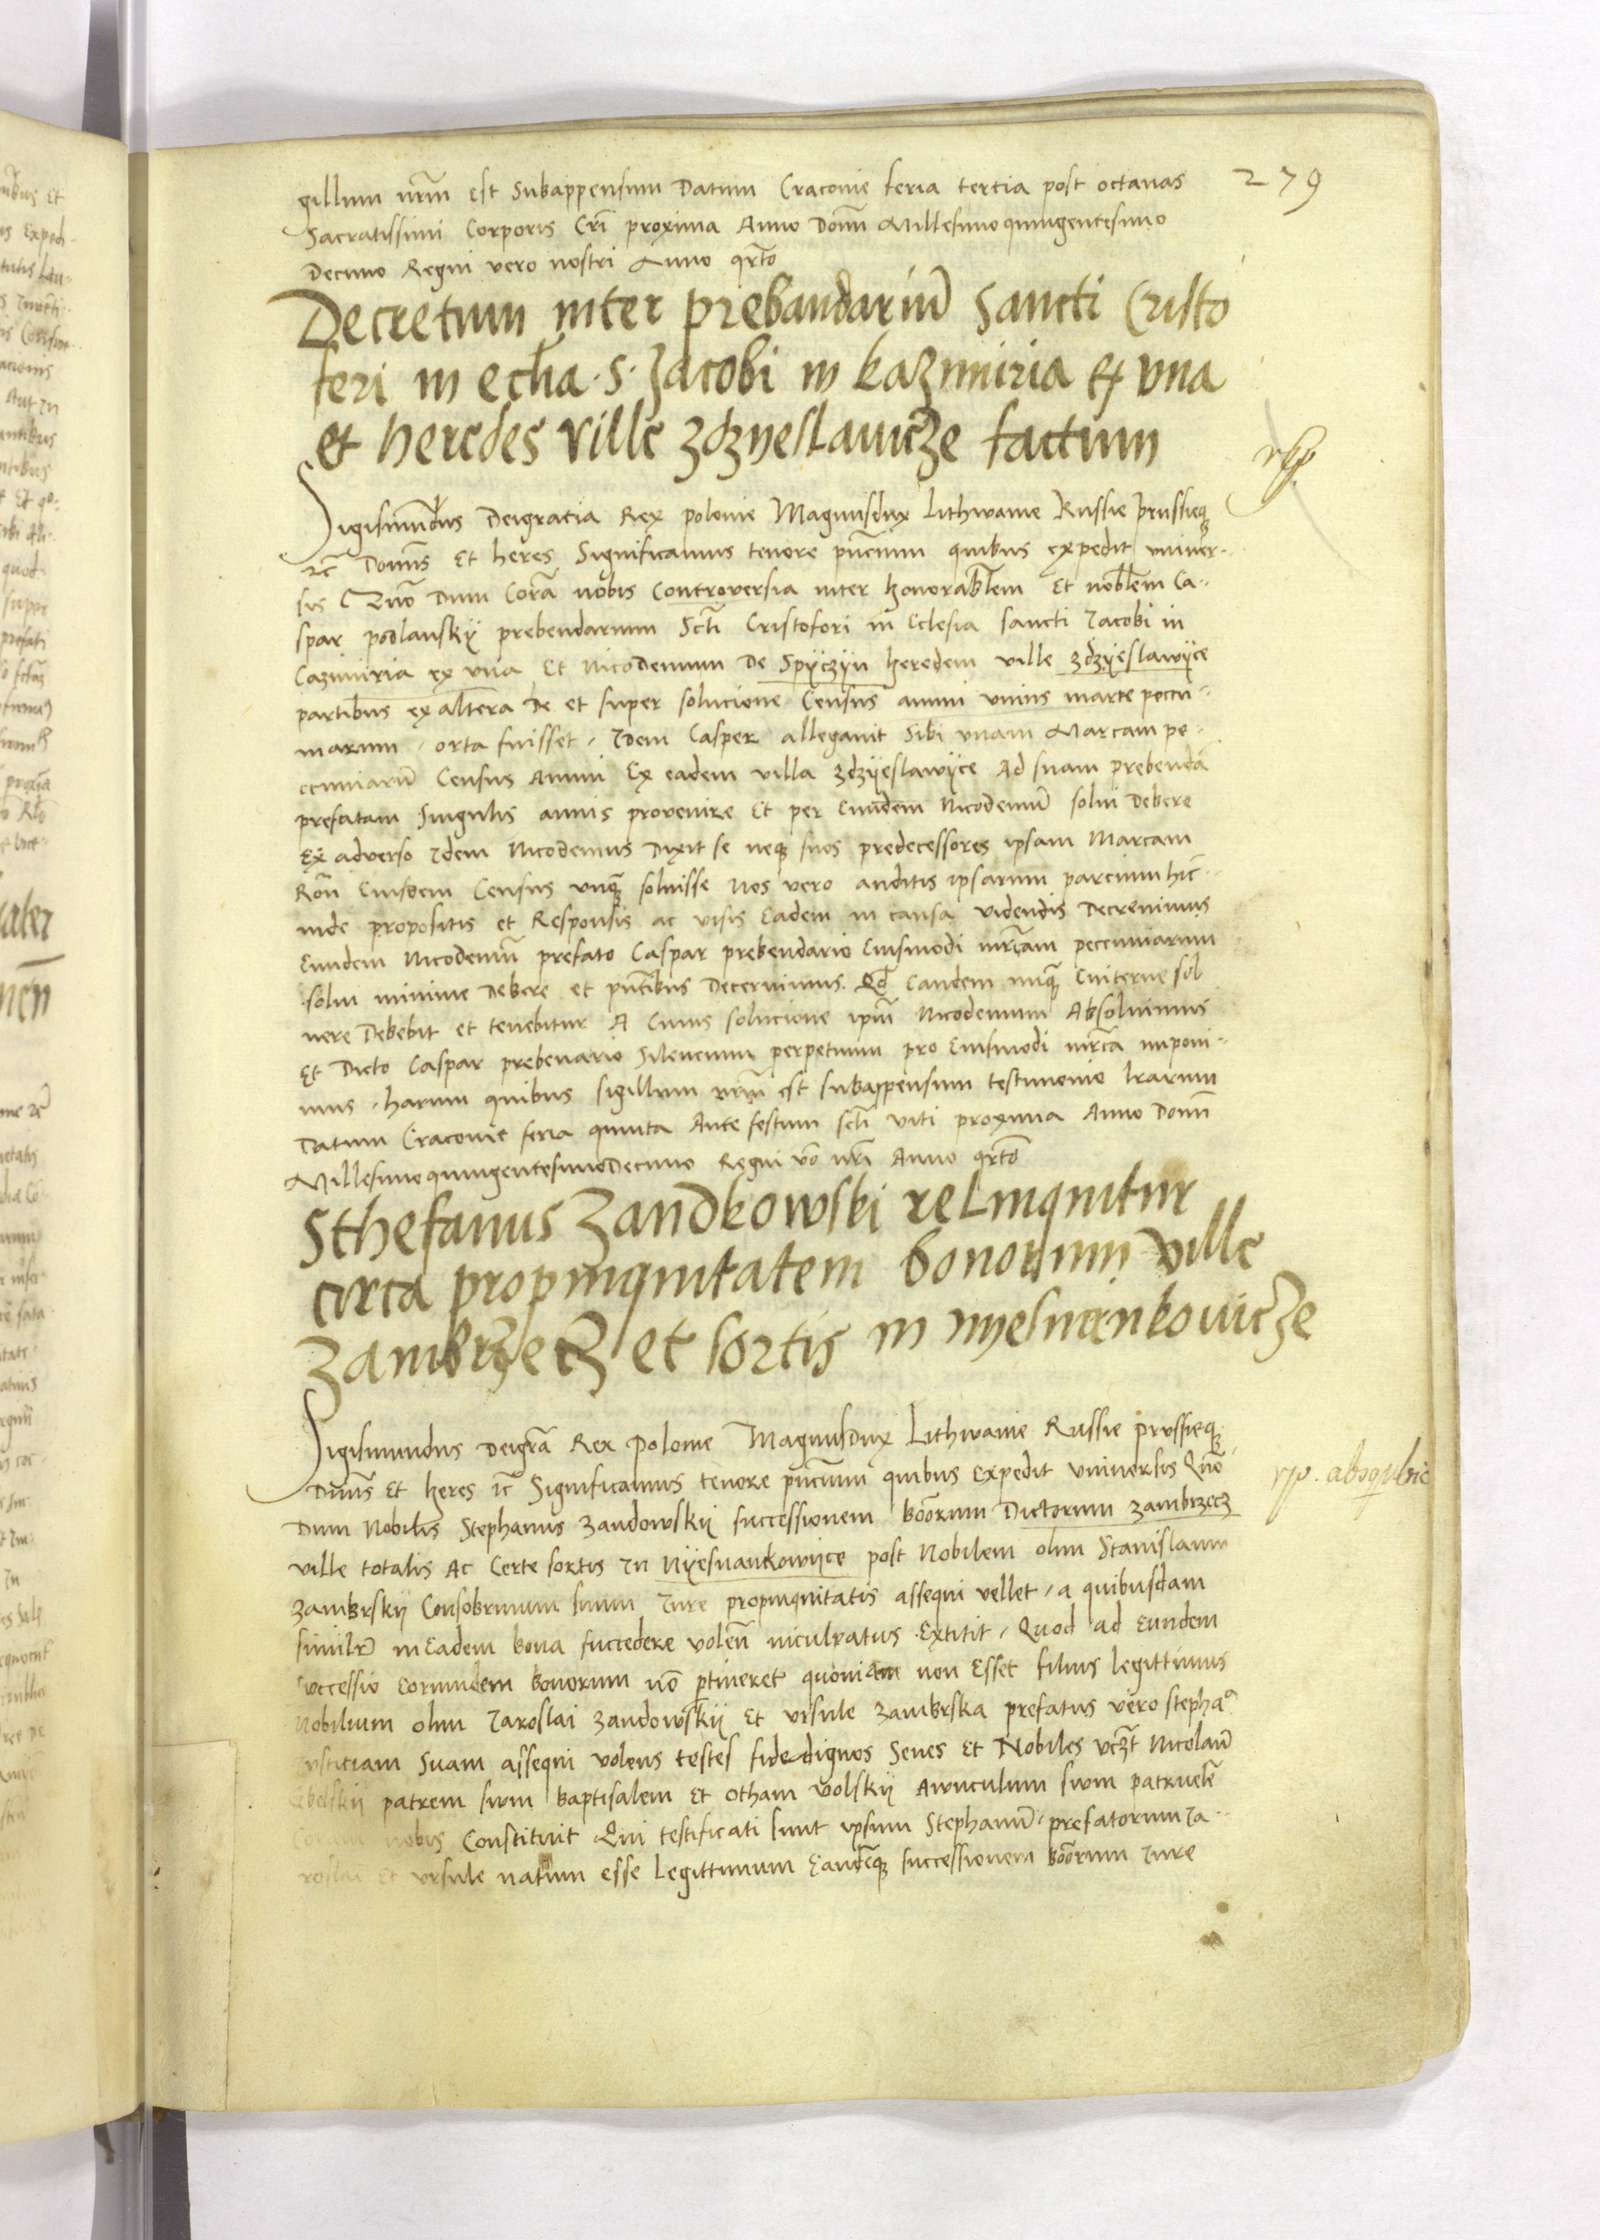 279
gillum nr̄m est Subappensum Datum Cracovie feria tertia post octavas
Sacratissimi Corporis Cr̄i proxima Anno Domī Millesimoquingentesimo
Decimo Regni vero nostri Anno qrto
Decretum inter prebandariū Sancti Cristo
feri in eccl̄ia · S · Jacobi in kazimiria ex vna
et heredes ville zdzyeslavicze factum
Sigismūdus Deigracia Rex polonie Magnusdux Lithwanie Russie prussieqȝ
rc̄ Domn̄s Et heres Significamus tenore pn̄cium quibus expedit univer-
sis Quō Dum Corā nobis Controversia inter honorab̄lem Et nob̄lem Ca-
spar podlanskÿ prebendarium Sct̄i Cristofori in Eclesia sancti Jacobi in
Cazimiria ex vna Et Nicodemum De Spÿczÿn heredem ville zdzÿeslawÿce
partibus ex alt̄era De et super solucione Census annui vnius marce pecu-
niarum, orta fuisset, Idem Casper allegavit Sibi vnam Marcam pe-
ccuniarū Census Annui Ex eadem villa zdzÿeslawÿce Ad suam prebendā
prefatam Singulis annis provenire Et per Eundem Nicodemū solvi Debere
Ex adverso Idem Nicodemus Dixit se neqȝ suos predecessores ipsam Marcam
Rōn Eiusdem Census vnqȝ solvisse Nos vero auditis ipsarum parcium hic̄
inde propositis et Responsis ac visis Eadem in causa videndis Decrevimus
Eundem Nicodemū prefato Caspar prebendario Eiusmodi mr̄cam peccuniarum
solvi minime Debere et pn̄tibus Decernimus. Qd̄ Eandem nuqȝ Eviterne sol
vere Debebit et tenebitur A Cuius solucione ipm̄ Nicodemum Absolvimus
Et Dicto Caspar prebenario Silencium perpetuum pro Eiusmodi mr̄ca imponi-
mus, harum quibus sigillum nr̄m est subappensum testimonio lrarum
Datum Cracovie feria quinta Ante festum sct̄i viti proxima Anno Domī
MillesimoquingentesimoDecimo Regni vō nr̄i Anno qrto
Sthefanus Zandkowski relinquitur
circa propinquitatem bonorum ville
Zambrzecz et sortis in nyesnankovicze
Sigismundus Deigrā Rex Polonie Magnusdux Lithwanie Russie prussieqȝ
Dn̄us Et heres rc̄ Significamus tenore pn̄cium quibus Expedit vniversis Quō
rp. absqȝ
Dum Nobilis Stephanus zandowskÿ successionem bōorum Dictorum zambrzecz
ville totalis Ac Certe sortis In Nÿesnankowÿce post Nobilem olim Stanislaum
zambrskÿ Consobrinum suum Jure propinquitatis assequi vellet, a quibusdam
similr̄ in Eadem bona succedere volen̄ inculpatus Extitit, Quod ad Eundem
successio Eorundem bonorum nō ptineret quoniam non Esset filius legittimus
Nobilium olim Jaroslai zandowskÿ Et vrsule zambrska prefatus vero stepha
Justiciam Suam assequi volens testes fidedignos Senes Et Nobiles vczt Nicolaū
patrem suum baptisalem Et otham volskÿ Avunculum suum patruelē
Coram nobis Constituit Qui testificati sunt ipsum Stephanū prefatorum Ja-
roslai Et vrsule natum esse Legittimum Eandēqȝ successionem bōorum Jure